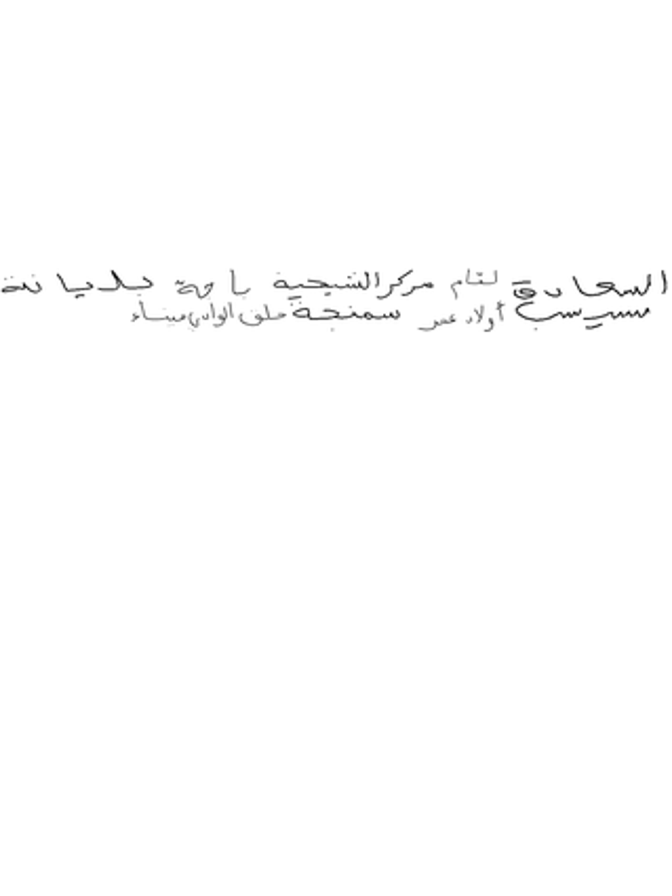 السعادة لتام مركز الشيحية باجة بليانة
سيسب أولاد عمر سمنجة حلق الوادي ميناء